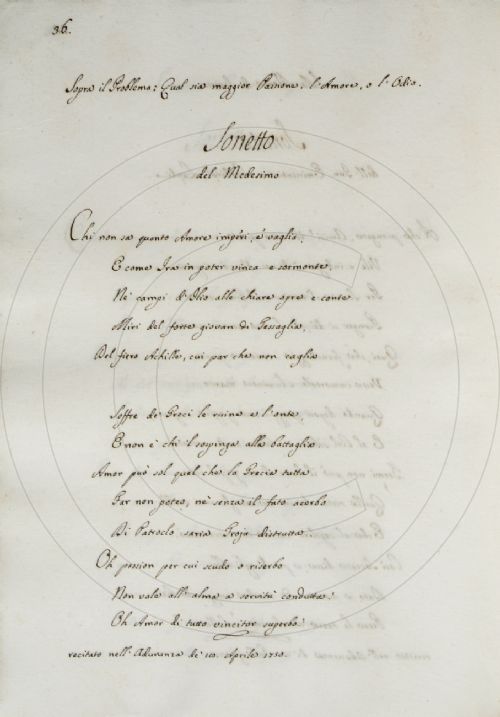 36.
Sopra il Problema: Qual sia maggior Passione. l'Amore, o l'Odio.
Sonetto
del Medesimo
Chi non sa quanto Amore imperi, e vaglia,
E come Ira in poter vinca e sormonte,
Ne' campi d'Ilio alle chiare opre e conte
Miri del forte giovan di Tessaglia,
Del fiero Achille, cui par che non caglia
Soffre de' Greci le ruine e l'onte,
E non è chi 'l sospinga alla battaglia
Amor può sol quel che la Grecia tutta
Far non poteo, ne' senza il fato acerbo
Di Patroclo saria Troja distrutta.
Oh passion per cui scudo o riserbo
Non vale all'alma a servitù condutta!
Oh Amor di tutto vincitor superbo!
recitato nell'Adunanza de' 10. Aprile 1750.